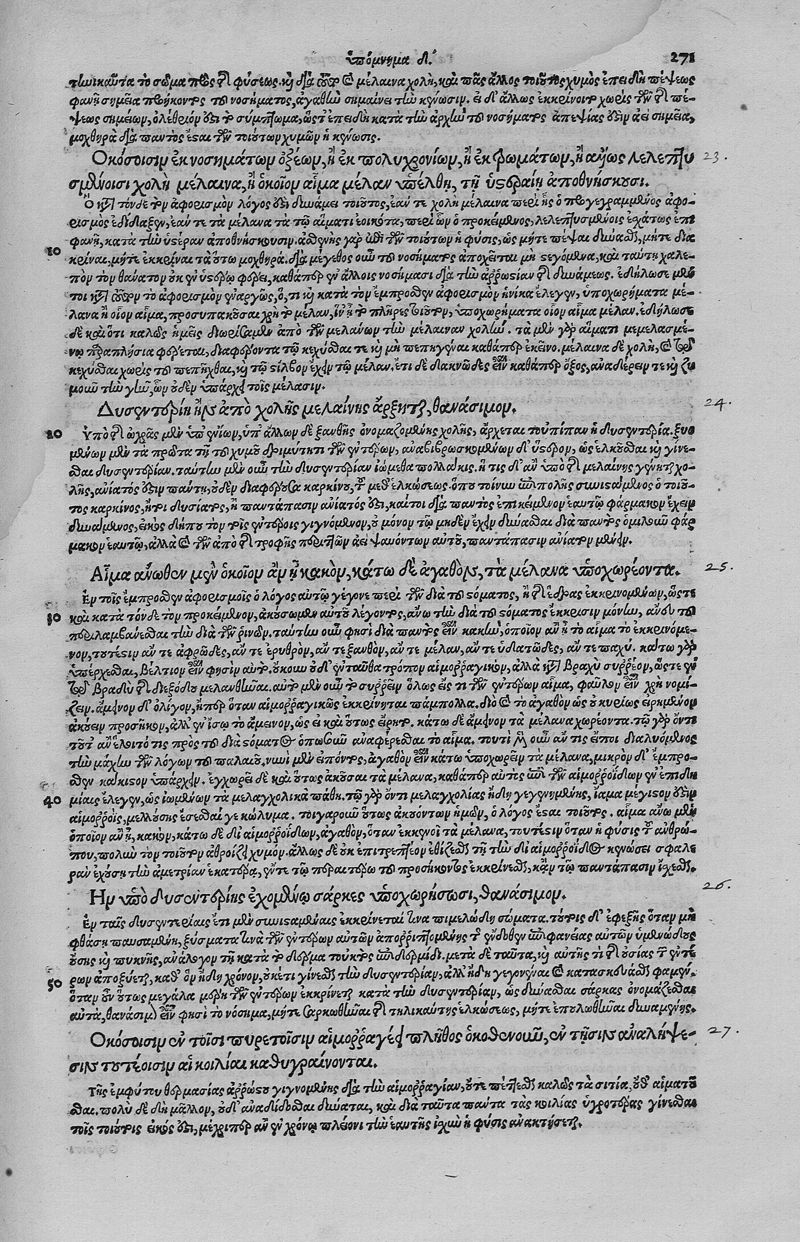 ὑπόμνημα δ'. 271
τωικαῦτα τὸ σῶμα πρὸς τῆς φύσεως. καὶ διὰ τοῦτο καὶ μέλαινα χολὴ, καὶ πᾶς ἄλλος τοιοῦτος χυμὸς ἐπειδὴ πέψεως
φανῇ σημεῖα προήκοντος τοῦ νοσήματος, ἀγαθὴν σημαίνει τὴν κένωσιν. εἰ δ' ἄλλως ἐκκρίνοιτο χωρὶς τῶν τῆς πέ-
ψεως σημείων, ὀλέθριόν ἐστι τὸ σύμπτωμα, ὥσπερ ἐπειδὴ κατὰ τὴν ἀρχὴν τοῦ νοσήματος ἀπεψίας ἐστὶν ἀεὶ σημεῖα,
μοχθηρὰ διὰ παντὸς ἔσται τῶν τοιούτων χυμῶν ἡ κένωσις.
Ὁκόσοισιν ἐκ νοσημάτων ὀξέων, ἢ ἐκ πολυχρονίων, ἢ ἐκ τρωμάτων, ἢ ἄλλως λελεπτυ 23.
σμένοισι χολὴ μέλαινα, ἢ ὁκοῖον αἷμα μέλαν ὑπέλθῃ, τῇ ὑστεραίῃ ἀποθνήσκουσι.
Ὁ καὶ τόνδε τὸν ἀφορισμὸν λόγος ἐστὶ δυνάμει τοιοῦτος, ἐάν τε χολὴ μέλαινα περὶ ἧς ὁ προγεγραμμένος ἀφο-
ρισμὸς ἐδίδαξεν, ἐάν τε τὰ μέλανα τὰ τῷ αἵματι ἐοικότα, περὶ ὧν ὁ προκείμενος, λελεπτυσμένοις ἐσχάτως ἐπι
φανῇ, κατὰ τὴν ὑστέραν ἀποθνήσκουσιν. ἀσθενὴς γὰρ ἤδη τῶν τοιούτων ἡ φύσις, ὡς μήτε πέψαι δύνασθαι, μήτε δια
10 κρῖναι, μήτε ἐκκρῖναι τὰ οὕτω μοχθηρά. διὰ μέγεθος οὖν τοῦ νοσήματος
πὸν τὸν θάνατον οὐκ ἐν ὑστέρῳ φέρει, καθάπερ ἐν ἄλλοις νοσήμασι διὰ τὴν ἀρρωστίαν τῆς δυνάμεως. ἐδήλωσε μὲν
τοι καὶ τὸν ἀφορισμὸν ἐναργῶς, ὅτι καὶ κατὰ τὸν ἔμπροσθεν ἀφορισμὸν ἡνίκα ἔλεγεν, ὑποχωρήματα μέ-
λανα ἢ οἷον αἷμα, προσυπακοῦσαι χρὴ τὸ μέλαν, ἵν' ᾖ τὸ πλῆρες τοιοῦτον, ὑποχωρήματα οἷον αἷμα μέλαν. ἐδήλωσε
δὲ καὶ ὅτι καλῶς ἡμεῖς διωρίσαμεν ἀπὸ τῶν μελάνων τὴν μέλαιναν χολήν. τὰ μὲν γὰρ αἵματι μεμελασμέ-
νῳ παραπλήσια φέρεται, διαφέροντα τῷ κεχύσθαι τε καὶ μὴ πεπηγέναι καθάπερ ἐκεῖνο. μέλαινα δὲ χολὴ, καὶ τῷ
κεχύσθαι χωρὶς τοῦ πεπῆχθαι, καὶ τῷ στίλβον ἔχειν τῷ μέλαν. ἔτι δὲ δακνώδες εἶναι καθάπερ ὄξος, ἀναδέρειν τε καὶ ζυ
μοῦν τὴν γῆν, ὧν οὐδὲν ὑπάρχει τοῖς μέλασιν.
Δυσεντερίη ἢν ἀπὸ χολῆς μελαίνης ἄρξηται, θανάσιμον. 24.
20 Ὑπὸ τῆς ὠχρᾶς μὲν ὑπ' ἐνίων, ὑπ' ἄλλων δὲ ξανθῆς ὀνομαζομένης χολῆς, ἄρχεται τοὐπίπαν ἡ δυσεντερία. ξυο
μένων μὲν τὰ πρῶτα τῇ τοῦ χυμοῦ δριμύτητι τῶν ἐντέρων, ἀναβιβρωσκομένων δ' ὕστερον, ὡς ἑλκοῦσθαι καὶ γίνε-
σθαι δυσεντερίαν. ταύτην μὲν οὖν τὴν δυσεντερίαν ἰώμεθα πολλάκις. ἥ τις δ' ἂν ὑπὸ τῆς μελαίνης γένηται χο-
λῆς, ἀνίατός ἐστιν πάντῃ, οὐδὲν διαφέρουσα καρκίνου τοῦ μεθ' ἑλκώσεως. ὅπου τοίνυν ἐπιπολῆς συνιστάμενος ὁ τοιοῦ-
τος καρκίνος, ἤτοι δυσίατος, ἢ παντάπασιν ἀνίατός ἐστι, καίτοι διὰ παντὸς ἐπικείμενον ἑαυτῷ φάρμακον ἔχειν
δυνάμενος, εἰκὸς δήπου τὸν τοῖς ἐντέροις γιγνόμενον, οὐ μόνον τῷ μηδὲν ἔχειν δύνασθαι διὰ παντὸς ὁμιλοῦν φάρ
μακον ἑαυτῷ, ἀλλὰ καὶ τῶν ἀπὸ τῆς τροφῆς περιττῶν ἀεὶ ψαυόντων αὐτοῦ, παντάπασιν ἀνίατον μένειν.
Αἷμα ἄνωθεν μὲν ὁκοῖον ἂν ᾖ κακὸν, κάτω δὲ ἀγαθὸν, τὰ μέλανα ὑποχωρέοντα. 25.
Ἐν τοῖς ἔμπροσθεν ἀφορισμοῖς ὁ λόγος αὐτῷ γέγονε περὶ τῶν διὰ τοῦ στόματος, ἢ τῆς ἕδρας ἐκκρινομένων, ὥστε
30 καὶ κατὰ τόνδε τὸν προκείμενον, ἀκούσωμεν αὐτοῦ λέγοντος, ἄνω τὴν διὰ τοῦ στόματος ἔκκρισιν μόνην, ἄνευ τοῦ
περιλαμβάνεσθαι τὴν διὰ τῶν ῥινῶν. ταύτην οὖν φησὶ διὰ παντὸς εἶναι κακὴν, ὁποῖον ἂν ᾖ τὸ αἷμα τὸ ἐκκρινόμε-
νον, τουτέστιν ἄν τε ἀφρῶδες, ἄν τε ἐρυθρὸν, ἄν τε ξανθὸν, ἄν τε μέλαν, ἄν τε ὑδατῶδες, ἄν τε παχύ. κάτω γὰρ
ὑπέρχεσθαι, βέλτιον εἶναί φησιν αὐτό. οὔκουν οὐδ' ἐνταῦθα τρόπον αἱμορραγικὸν, ἀλλὰ κατὰ βραχὺ συρρέον, ὥστε ἐν
τῷ βραδεῖ τῆς διεξόδου μελανθῆναι. αὐτὸ μὲν οὖν τὸ συρρεῖν ὅλως εἴς τι τῶν ἐντέρων αἷμα, φαῦλον εἶναι χρὴ νομί-
ζειν. ἄμεινον δ' ὀλίγον, ἤπερ ὅταν αἱμορραγικῶς ἐκκρίνηται πάμπολλα. διὸ καὶ τὸ ἀγαθὸν ὡς οὐ κυρίως εἰρημένον
ἀκούειν προσῆκον, ἀλλ' ἐν ἴσῳ τὸ ἄμεινον, ὡς εἰ καὶ οὕτως εἴρητο. κάτω δὲ ἄμεινον τὰ μέλανα χωρέοντα. τῷ γὰρ ὄντι
τοῦτ' ἂν ἕλοιτό τις πρὸς τοῦ διὰ στόματος ὁπωσοῦν ἀναφέρεσθαι τὸ αἷμα. τουτὶ μὲν οὖν ἄν τις εἴποι διαλυόμενος
τὴν μάχην τῶν λόγων τοῦ παλαιοῦ, νυνὶ μὲν εἰπόντος, ἀγαθὸν εἶναι κάτω ὑποχωρεῖν τὰ μέλανα, μικρὸν δ' ἔμπρο-
σθεν κάκιστον ὑπάρχειν. ἐγχωρεῖ δὲ καὶ οὕτως ἀκοῦσαι τὰ μέλανα, καθάπερ αὐτὸς ἐπὶ τῶν αἱμορροΐδων ἐν ἐπιδη
40 μίαις ἔλεγεν, ὡς ἰωμένων τὰ μελαγχολικὰ πάθη. τῷ γὰρ ὄντι μελαγχολίας ἤδη γεγενημένης, ἴαμα μέγιστόν ἐστιν
αἱμορροΐς, μελλούσης ἔσεσθαί γε κώλυμα. τοιγαροῦν οὕτως ἀκουόντων ἡμῶν, ὁ λόγος ἔσται τοιοῦτος. αἷμα ἄνω μὲν
ὁποῖον ἂν ᾖ, κακὸν, κάτω δὲ δι' αἱμορροΐδων, ἀγαθὸν, ὅταν ἐκκενοῖ τὰ μέλανα, τουτέστιν ὅταν ἡ φύσις τοῦ ἀνθρώ-
που, πολὺν τὸν τοιοῦτον ἀθροίζῃ χυμόν. ἄλλως δὲ οὐκ ἐπιτρεπτέον ἐθίζεσθαι τῇ τῆς δι' αἱμορροΐδος κενώσει σφαλε
ρὰν ἐχούσῃ τὴν ἀμετρίαν ἑκατέραν, ἄν τε τῷ περαιτέρω τοῦ προσήκοντος ἐκκρίνεσθαι, κἂν τῷ παντάπασιν ἴσχεσθαι.
Ἢν ὑπὸ δυσεντερίης ἐχομένῳ σάρκες ὑποχωρήσωσι, θανάσιμον. 26.
Ἐν ταῖς δυσεντερίαις ἔτι μὲν συνισταμέναις ἐκκρίνεταί τινα πιμελώδη σώματα. τούτοις δ' ἐφεξῆς ὅταν μὴ
φθάσῃ παυσαμένη, ξύσματά τινα τῶν ἐντέρων αὐτῶν ἀπορριπτομένης τῆς ἔνδοθεν ἐπιφανείας αὐτῶν ὑμενώδους
οὔσης καὶ πυκνῆς, ἀνάλογον τῇ κατὰ τὸ δέρμα τοὐκτὸς ἐπιδερμίδι. μετὰ δὲ ταῦτα, καὶ αὐτῆς τι τῆς οὐσίας τῶν ἐντέ-
50 ρων ἀποξύεται, καθ' ὃν ἤδη χρόνον, οὐκέτι γίνεσθαι τὴν δυσεντερίαν, ἀλλ' ἤδη γεγονέναι καὶ κατεσκευάσθαι φαμέν.
ὅταν οὖν οὕτως μεγάλα μόρια τῶν ἐντέρων ἐκκρίνηται κατὰ τὴν δυσεντερίαν, ὡς δύνασθαι σάρκας ὀνομάζεσθαι
αὐτὰ, θανάσιμον εἶναί φησι τὸ νόσημα, μήτε σαρκωθῆναι τῆς τηλικαύτης ἑλκώσεως, μήτε ἐπουλωθῆναι δυναμένης.
Ὁκόσοισιν ἐν τοῖσι πυρετοῖσιν αἱμορραγέει πλῆθος ὁκοθενοῦν, ἐν τῇσιν ἀναλήψε- 27.
σιν τουτέοισιν αἱ κοιλίαι καθυγραίνονται.
Τῆς ἐμφύτου θερμασίας ἀρρώστου γιγνομένης διὰ τὴν αἱμορραγίαν, οὔτε πέττεται καλῶς τὰ σιτία, οὔθ' αἱματοῦ
σθαι, πολὺ δὲ δὴ μᾶλλον, οὐδ' ἀναδίδοσθαι δύναται, καὶ διὰ ταῦτα πάντα τὰς κοιλίας ὑγροτέρας γίνεσθαι
τοῖς τοιούτοις εἰκός ἐστι, μέχριπερ ἂν ἐν χρόνῳ πλείονι τὴν ἑαυτῆς ἰσχὺν ἡ φύσις ἀνακτήσηται.